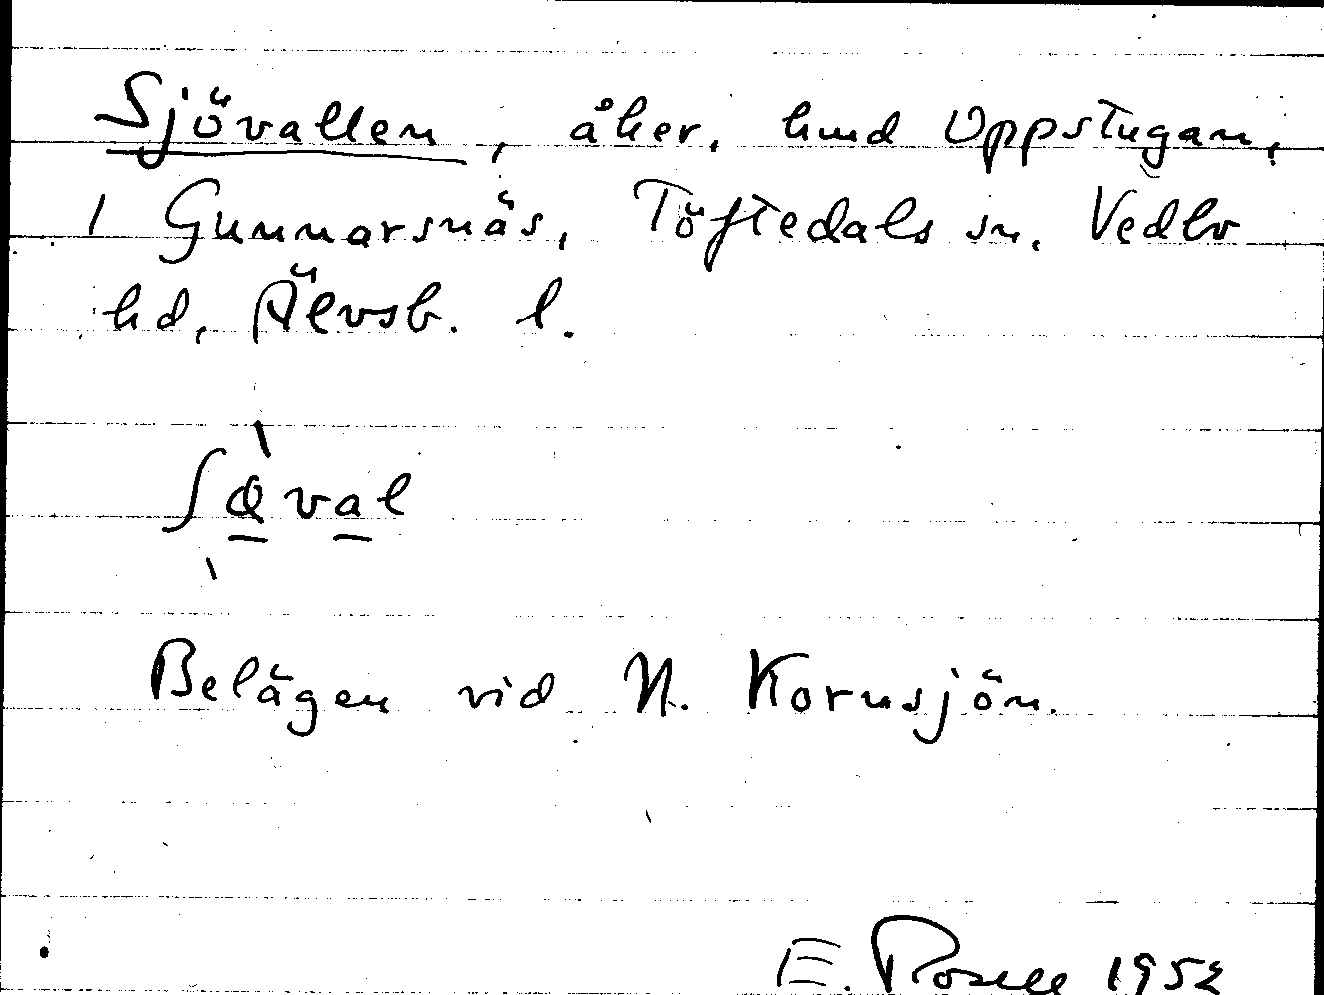 Sjövallen, åker, hmd Uppstugan,
1 Gunnarsnäs, Töftedals sn. Vedbo
hd, Älvsb. l.
ʃø̱va̱l
Belägen vid N. Kornsjön.
E. Rosell 1952